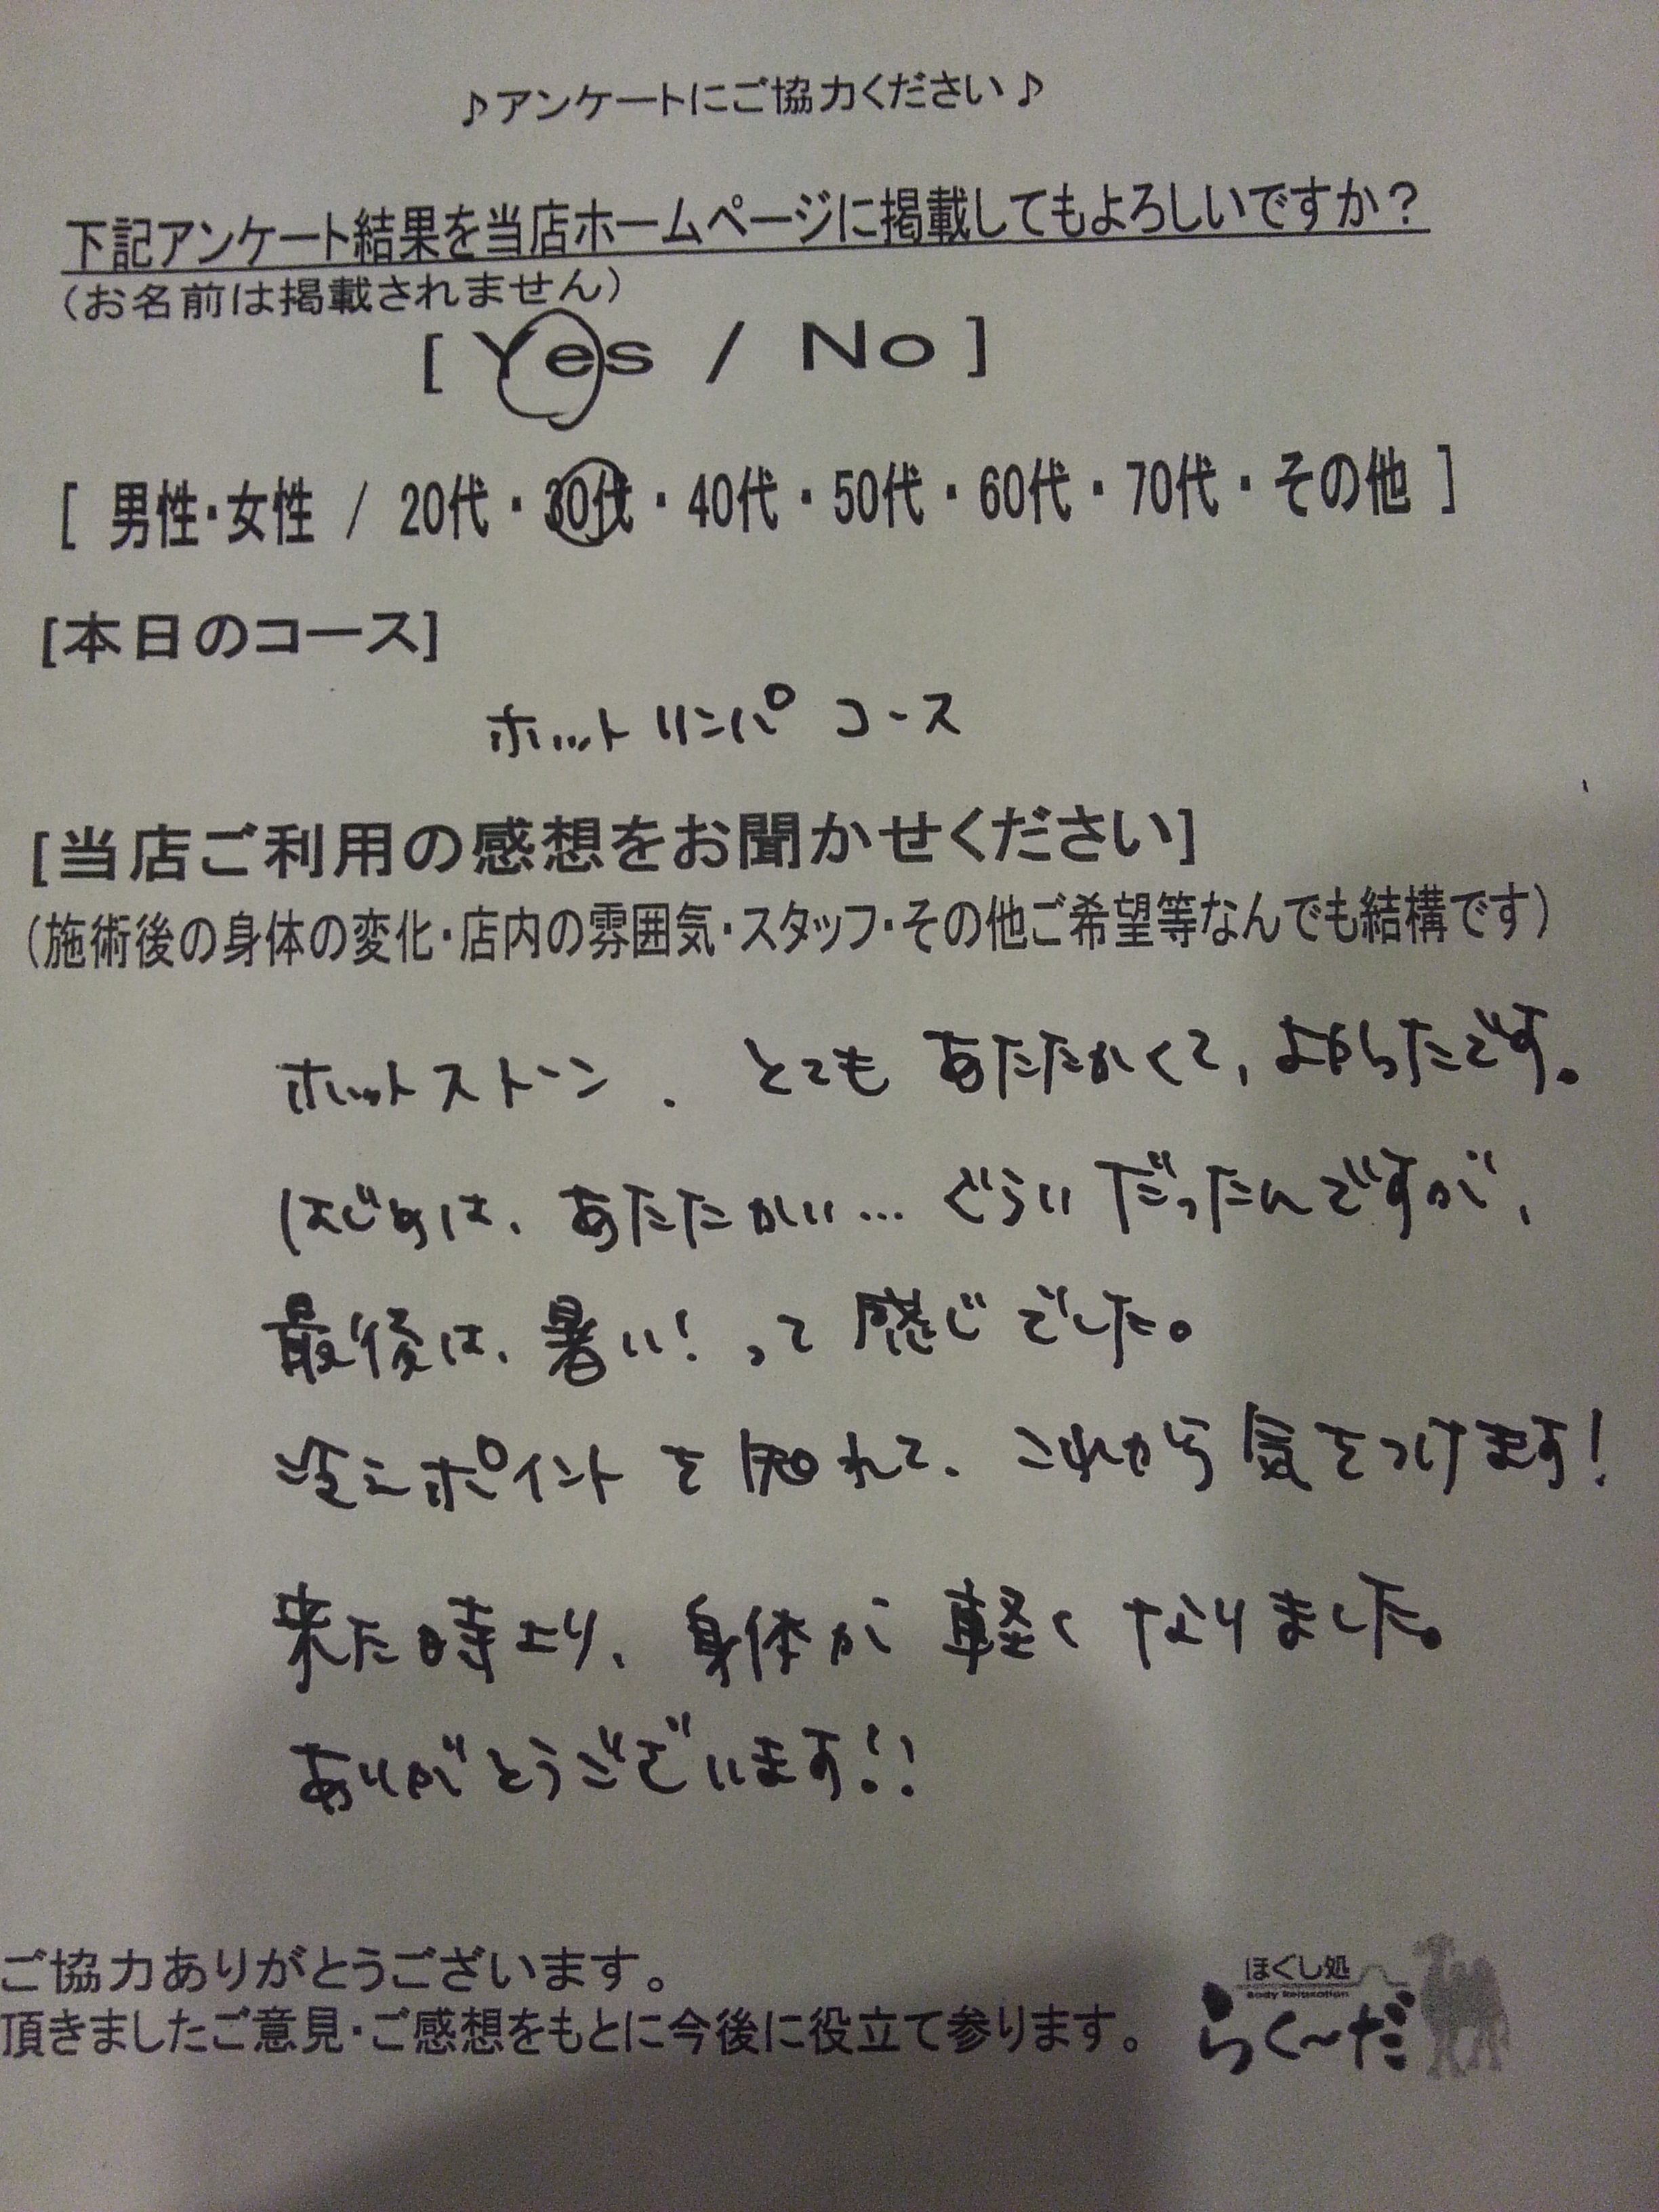 ♪アンケートにご協力ください♪
下記アンケート結果を当店ホームページに掲載してもよろしいですか？
（お名前は掲載されません）
[ Yes / No ]
[ 男性・女性 / 20代・30代・40代・50代・60代・70代・その他 ]
[本日のコース]
ホットリンパ コース
[当店ご利用の感想をお聞かせください]
（施術後の身体の変化・店内の雰囲気・スタッフ・その他ご希望等なんでも結構です）
ホットストーン、とても あたたかくて、よかったです。
はじめは、あたたかい… ぐらい だったんですが、
最後は、暑い！って 感じでした。
冷えポイントを知れて、これから気をつけます！
来た時より、身体が 軽く なりました。
ありがとうございます！！
ご協力ありがとうございます。
頂きましたご意見・ご感想をもとに今後に役立て参ります。
ほぐし処
Body Relaxation
らく〜だ